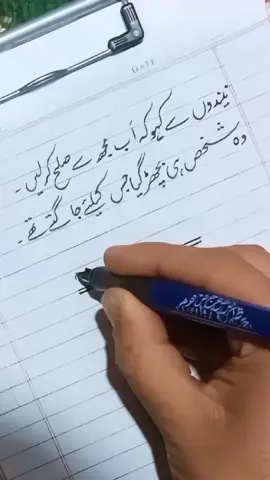 DATE
نیندوں سے کہو کہ اَب مجھ سے صلح کر لیں ۔
وہ شخص ہی بچھڑ گیا جس کیلئے جاگتے تھے ۔